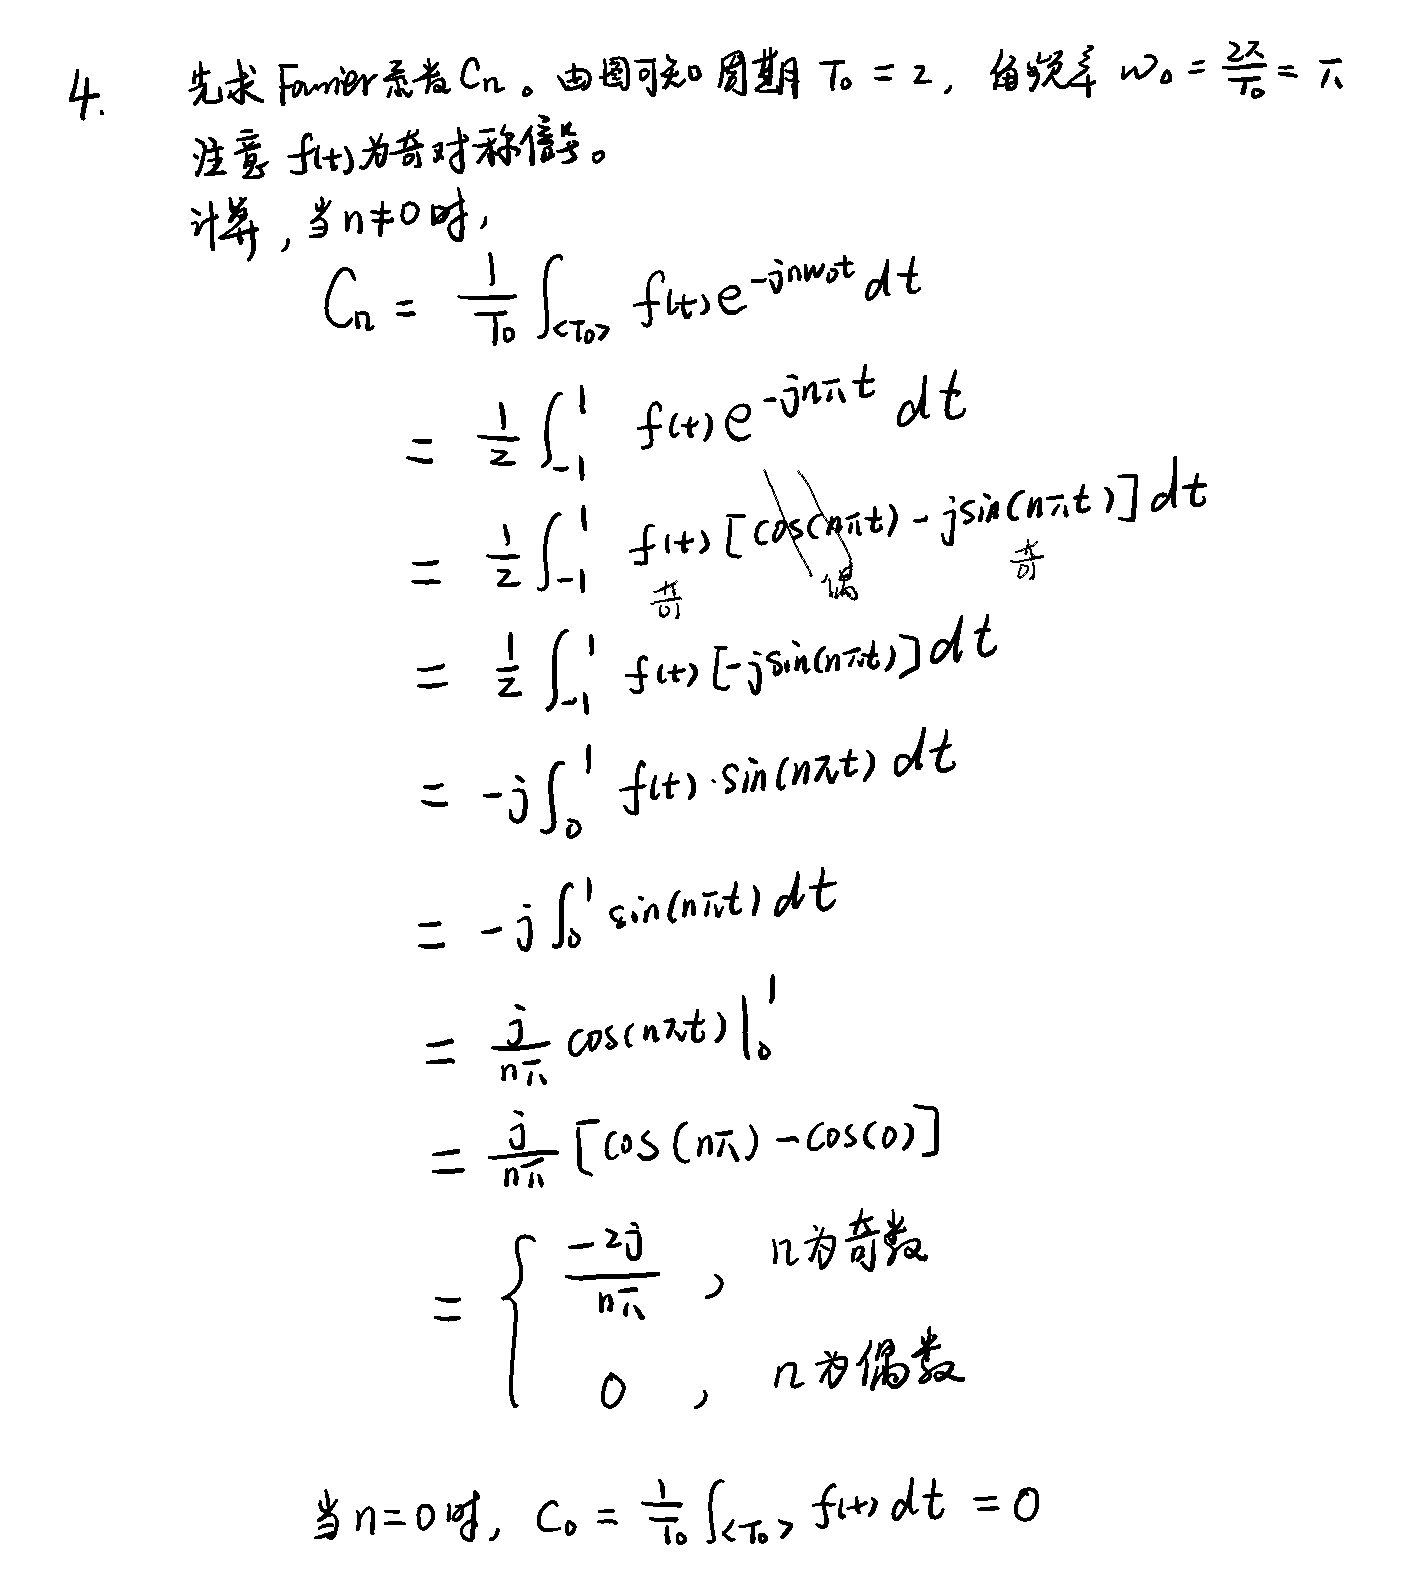 4. 先求 Fourier 系数 Cn。由图可知周期 T₀ = 2, 角频率 ω₀ = 2π/T₀ = π
注意 f(t)为奇对称信号。
计算, 当 n≠0 时,
Cn = 1/T₀ ∫_<T₀> f(t)e^{-jnω₀t} dt
= 1/2 ∫_{-1}^{1} f(t)e^{-jnπt} dt
= 1/2 ∫_{-1}^{1} f(t) [cos(nπt) - jsin(nπt)] dt
奇 偶 奇
= 1/2 ∫_{-1}^{1} f(t) [-jsin(nπt)] dt
= -j ∫_0^1 f(t)·sin(nπt) dt
= -j ∫_0^1 sin(nπt) dt
= j/nπ cos(nπt) |_0^1
= j/nπ [cos(nπ) - cos(0)]
= { -2j/nπ , n为奇数
0 , n为偶数
当 n=0 时, C₀ = 1/T₀ ∫_<T₀> f(t) dt = 0